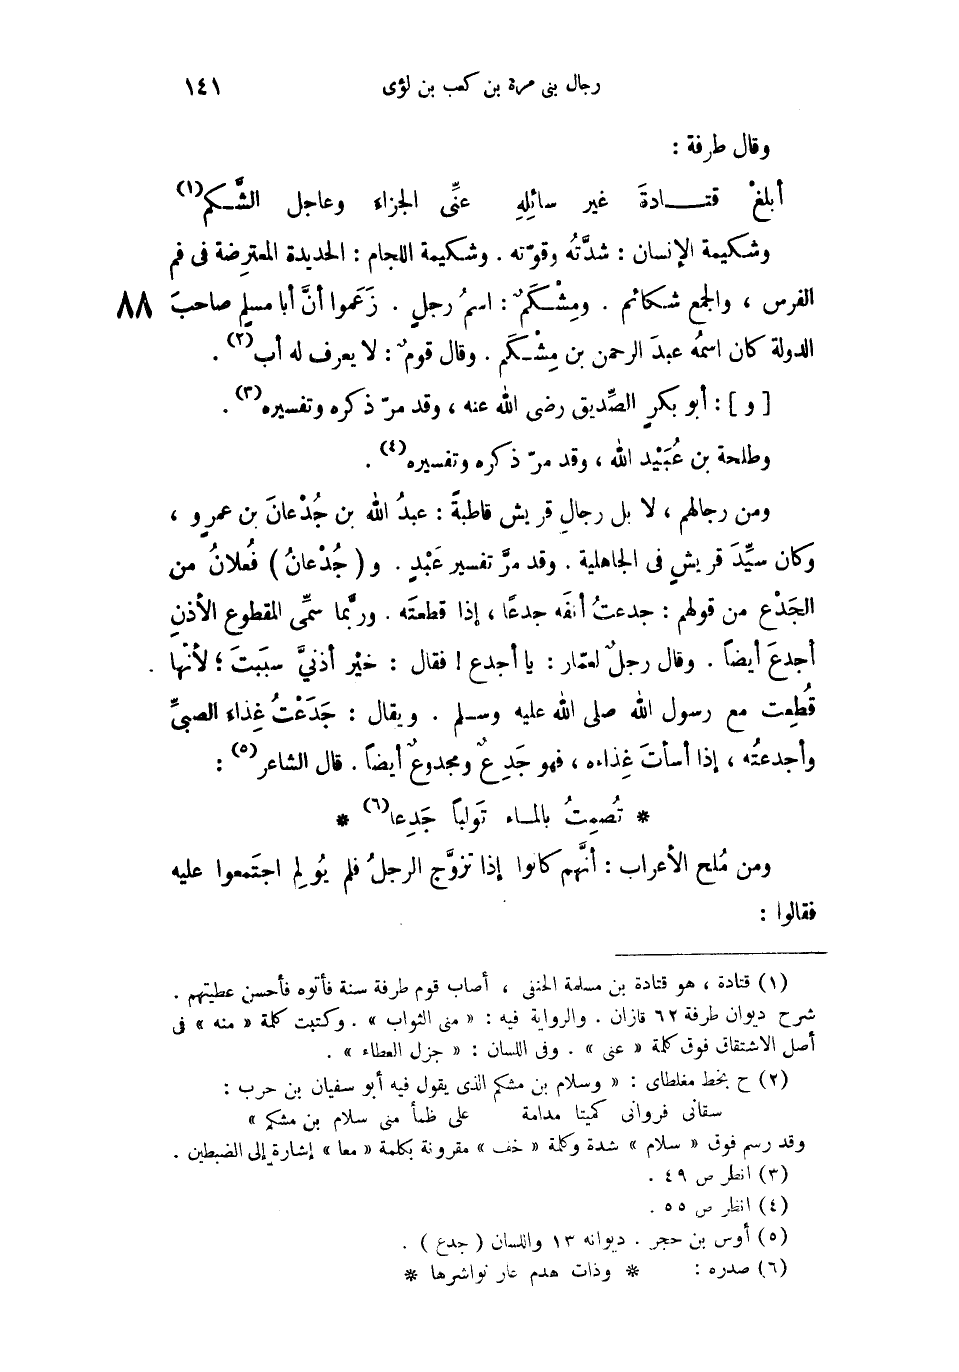 رجال بنى مرة بن كعب بن لؤى ١٤١
وقال طرفة :
أبلغْ قتـــادةَ غير سائِلِهِ عنِّى الجزاءَ وعاجل الشَّـكم(١)
وشكيمة الإنسان : شدَّتُه وقوّته . وشكيمة اللجام : الحديدة المعترِضة فى فم
الفرس ، والجمع شكائم . ومِشْكَمٌ : اسمُ رجلٍ . زَعَموا أنَّ أبا مسلمٍ صاحبَ ٨٨
الدولة كان اسمُه عبدَ الرحمن بن مِشْـكَم . وقال قومٌ : لا يعرف له أب(٢) .
[ و ] : أبو بكرٍ الصِّديق رضى الله عنه ، وقد مرّ ذكره وتفسيره(٣) .
وطلحة بن عُبَيْد الله ، وقد مرّ ذكره وتفسيره(٤) .
ومن رجالهم ، لا بل رجالِ قريش قاطبةً : عبدُ الله بن جُدْعانَ بن عمرٍو ،
وكان سيِّدَ قريشٍ فى الجاهلية . وقد مرَّ تفسير عَبْدٍ . و ( جُدْعانُ ) فُعلانُ من
الجَدْع من قولهم : جدعتُ أنفَه جدعًا ، إذا قطعتَه . وربَّما سمِّى المقطوع الأذنِ
أجدعَ أيضاً . وقال رجلٌ لعمّار : يا أجدع ! فقال : خيْر أذنيَّ سبَبتَ ؛ لأنّها
قُطِعت مع رسول الله صلى الله عليه وسـلم . ويقال : جَدَعْتُ غِذاءَ الصبىِّ
وأجدعتُه ، إذا أسأتَ غِذاءه ، فهو جَدِعٌ ومجدوعٌ أيضاً . قال الشاعر(٥) :
* تُصمِتُ بالمـاء تَولباً جَدِعا(٦) *
ومن مُلح الأعراب : أنَّهم كانوا إذا تزوَّج الرجلُ فلم يُولِم اجتَمعوا عليه
فقالوا :
(١) قتادة ، هو قتادة بن مسلمة الحنفى ، أصاب قوم طرفة سنة فأتوه فأحسن عطيتهم .
شرح ديوان طرفة ٦٢ قازان . والرواية فيه : « منى الثواب » . وكتبت كلمة « منه » فى
أصل الاشتقاق فوق كلمة « عنى » . وفى اللسان : « جزل العطاء » .
(٢) ح بخط مغلطاى : « وسلام بن مشكم الذى يقول فيه أبو سفيان بن حرب :
سقانى فروانى كميتا مدامة على ظمأ منى سلام بن مشكم »
وقد رسم فوق « سلام » شدة وكلمة « خف » مقرونة بكلمة « معا » إشارة إلى الضبطين .
(٣) انظر ص ٤٩ .
(٤) انظر ص ٥٥ .
(٥) أوس بن حجر . ديوانه ١٣ واللسان ( جدع ) .
(٦) صدره : * وذات هدم عار نواشرها *